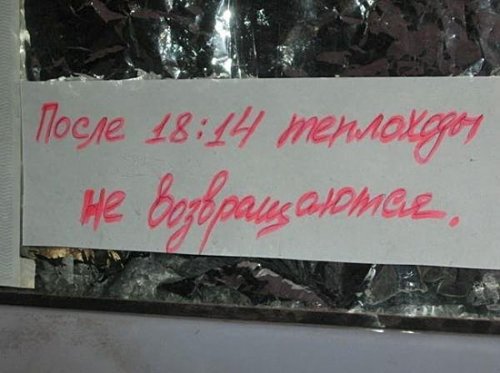 После 18:14 теплоходы
не возвращаются.